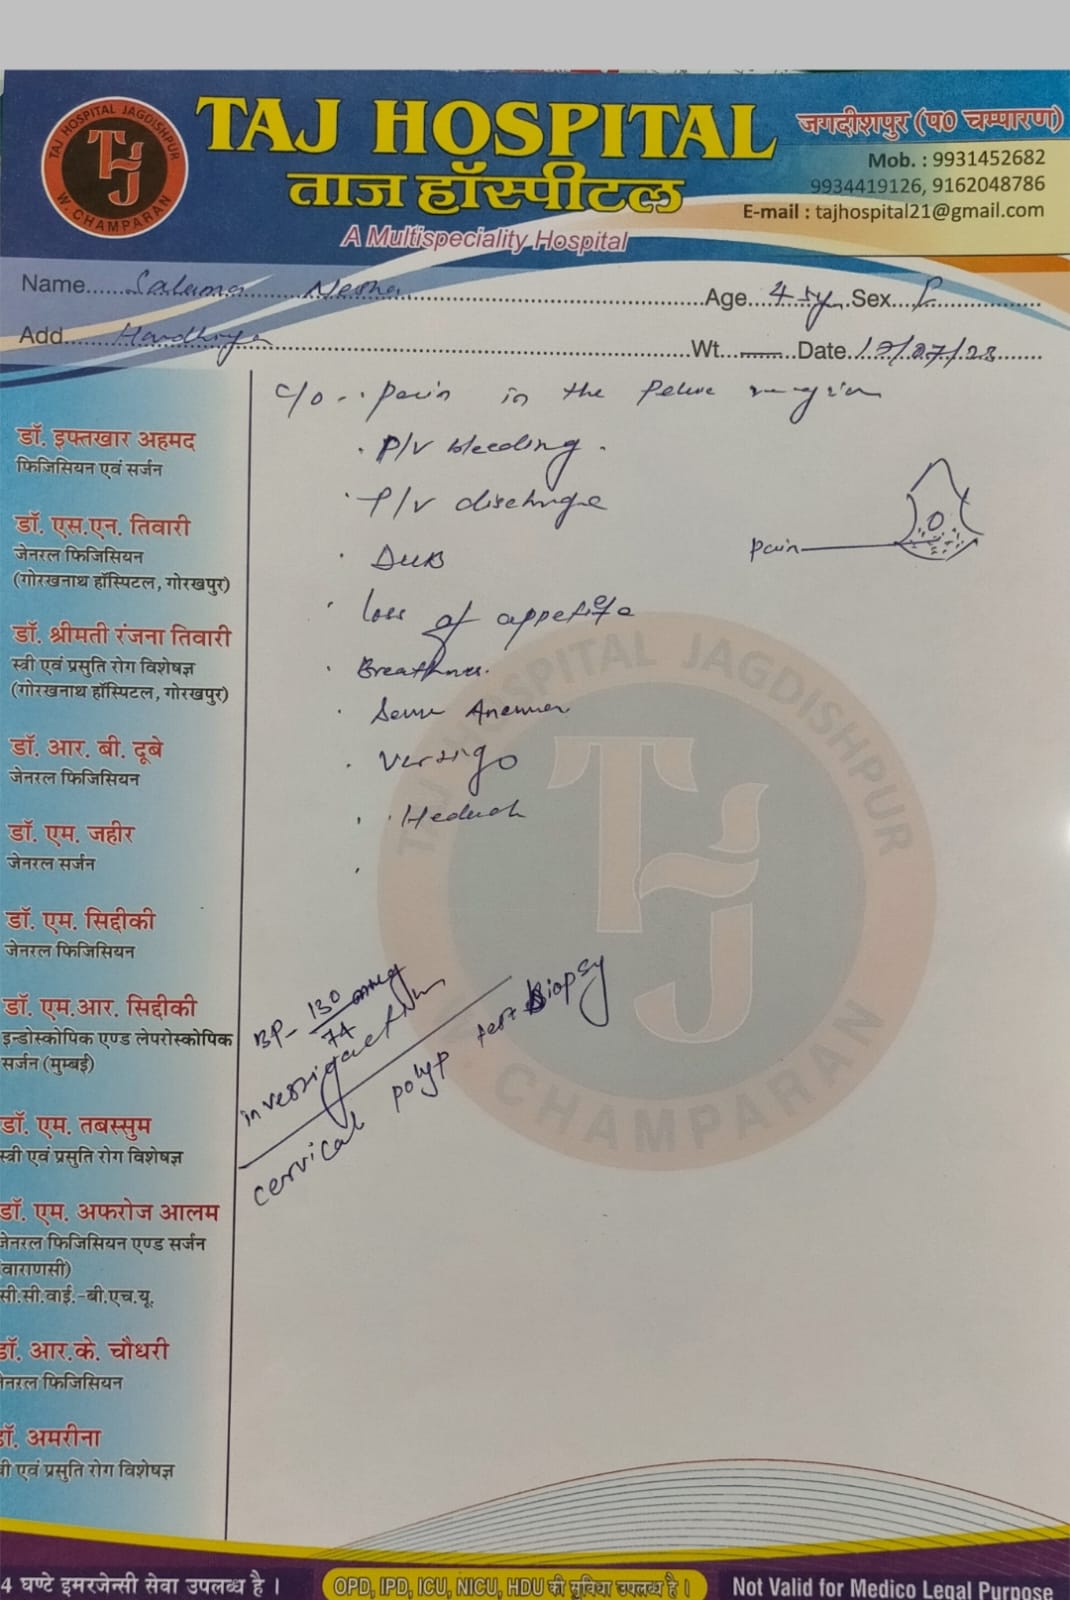 TAJ HOSPITAL JAGDISHPUR
W. CHAMPARAN
TJ
TAJ HOSPITAL
ताज हॉस्पीटल
A Multispeciality Hospital
जगदीशपुर (प0 चम्पारण)
Mob. : 9931452682
9934419126, 9162048786
E-mail : tajhospital21@gmail.com
Name...... Nesha ......Age...45y..Sex...F......
Add......Hardhiya......Wt......Date.../07/23......
डॉ. इफ्तखार अहमद
फिजिसियन एवं सर्जन
डॉ. एस.एन. तिवारी
जेनरल फिजिसियन
(गोरखनाथ हॉस्पिटल, गोरखपुर)
डॉ. श्रीमती रंजना तिवारी
स्त्री एवं प्रसुति रोग विशेषज्ञ
(गोरखनाथ हॉस्पिटल, गोरखपुर)
डॉ. आर. बी. दूबे
जेनरल फिजिसियन
डॉ. एम. जहीर
जेनरल सर्जन
डॉ. एम. सिद्दीकी
जेनरल फिजिसियन
डॉ. एम.आर. सिद्दीकी
इन्डोस्कोपिक एण्ड लेपरोस्कोपिक
सर्जन (मुम्बई)
डॉ. एम. तबस्सुम
स्त्री एवं प्रसुति रोग विशेषज्ञ
डॉ. एम. अफरोज आलम
जेनरल फिजिसियन एण्ड सर्जन
वाराणसी)
सी.सी.वाई.-बी.एच.यू.
डॉ. आर.के. चौधरी
जेनरल फिजिसियन
डॉ. अमरीना
त्री एवं प्रसुति रोग विशेषज्ञ
C/O - . pain in the Pelvic region
. P/V bleeding .
. P/V discharge
. DUB
. loss of appetite
.
. Anemia
. Vertigo
. .
.
pain
BP- 130/74 mmHg
investigation
cervical polyp test Biopsy
TAJ HOSPITAL JAGDISHPUR
W. CHAMPARAN
TJ
4 घण्टे इमरजेन्सी सेवा उपलब्ध है ।
OPD, IPD, ICU, NICU, HDU की सुविधा उपलब्ध है ।
Not Valid for Medico Legal Purpose